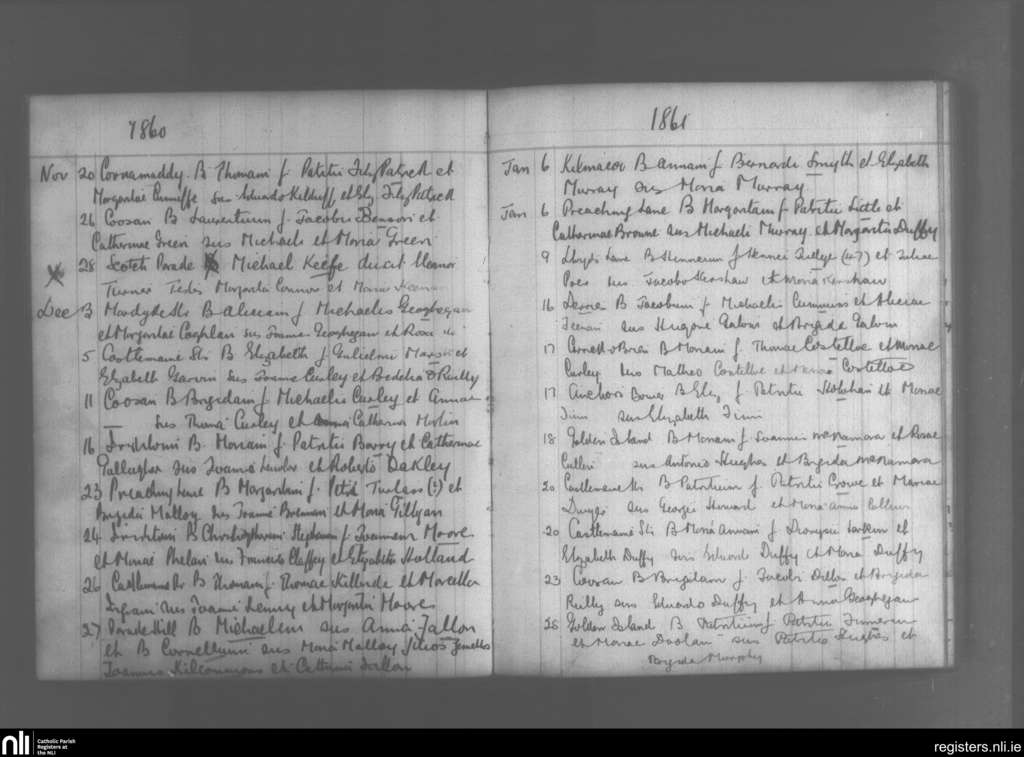 1860
Nov 20 Coonamaddy. B Thomam f. Patritii Fitz Patrick et
Margaritae Cunniffe sus Eduardo Kilduff et Eliz Fitz Patrick
26 Coosan B Laurentium f. Jacobi Benson et
Catherinae Green sus Michaele et Maria Green
28 Scotch Parade Michael Keefe duxit Eleanor
Turner Testes Margarita Connor et Maria
Dec 3 Mardyke Str B f Michaelis Geoghegan
et Margaritae Coghlan sus Joanne Geoghegan et Rosa
5 Castlemaine Str B Elizabeth f. Gulielmi et
Elizabeth Garvin sus Joanne Curley et Bedelia O Reilly
11 Coosan B Brigidam f Michaelis Curley et Annae
sus Thoma Curley et Catherina
16 Irishtown B. Mariam f. Patritii Barry et Catherinae
Gallagher sus Joanne Lawlor et Roberto Oakley
23 Preaching Lane B Margaritam f. Petri (?) et
Brigidae Malloy sus Joanne Brennan et Maria Gillgan
24 Irishtown B Christopherum Stephanum f Joannem Moore
et Mariae Phelan sus Francis Claffey et Elizabetha Holland
26 Castlemaine Str B Thomam f. Thomae Killurde et Marcella
sus Joanne Lenny et Margarita Moore
27 Parade Hill B Michaelem sus Anna Fallon
et B Cornellyum sus Maria Malloy filios gemellos
Joannis et Catherina Scallon
1861
Jan 6 Kilmacor B Annam f Bernardi Smyth et Elizabeth
Murray sus Maria Murray
Jan 6 Preaching Lane B Margaritam f Patritii Little et
Catharinae Browne sus Michaele Murray et Margarita Duffy
9 Lloyds Lane B f (47) et Juliae
sus Jacobo Kershaw et Maria Kershaw
16 B Jacobum f Michaelis Cummins et
sus Hugone Galvin et Brigida Galvin
17 B Mariam f. Thomae Costelloe et Mariae
Curley sus Matheo Costelloe et Costelloe
17 Anchors Bower B Eliz f Patritii et Mariae
Finn sus Elizabeth Finn
18 Golden Island B Mariam f Joannis McNamara et Rosae
Cullen sus Antonio Hughes et Brigida McNamara
20 Castlemaine Str B Patritium f Patritii Crowe et Mariae
sus Georgio Howard et Maria Anna
20 Castlemaine Str B Maria Annam f Dionysii Larkin et
Elizabeth Duffy sus Eduardo Duffy et Maria Duffy
23 Coosan B Brigidam f Jacobi Dillon et Brigida
Reilly sus Eduardo Duffy et Anna Geoghegan
28 Golden Island B Patritium f Patritii Finneran
et Mariae Doolan sus Patritio Hughes et
Brigida Murphy
nli Catholic Parish
Registers at
the NLI
registers.nli.ie